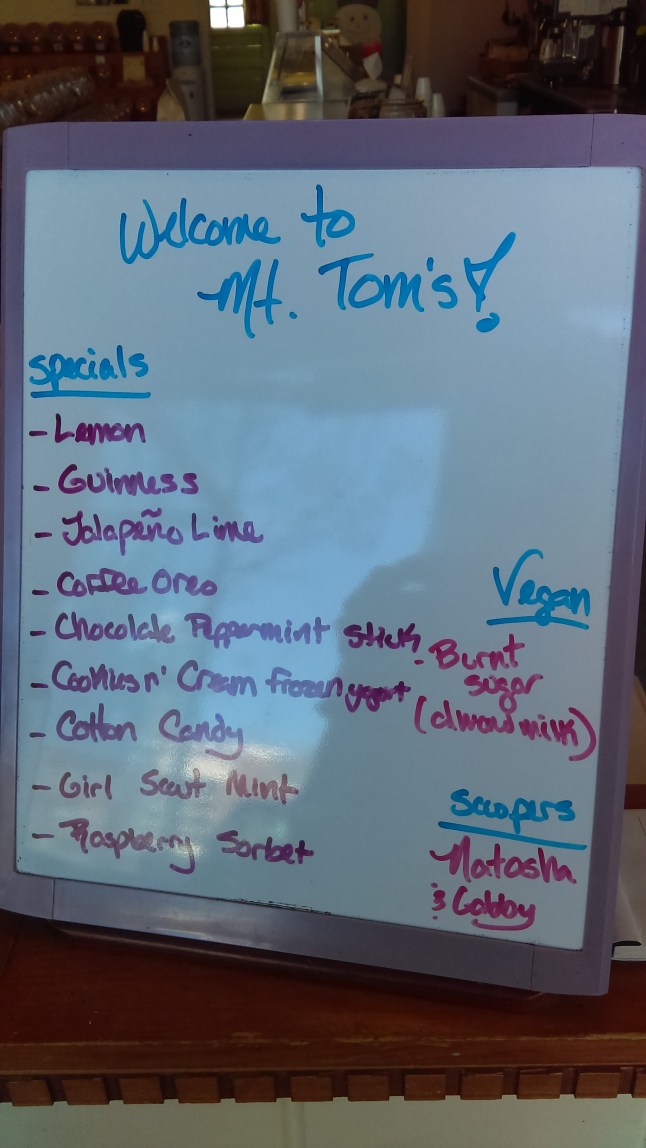 Welcome to
Mt. Tom's!
Specials
- Lemon
- Guinness
- Jalapeño Lime
- Coffee Oreo
- Chocolate Peppermint Stick
- Cookies n' Cream Frozen yogurt
- Cotton Candy
- Girl Scout Mint
- Raspberry Sorbet
Vegan
- Burnt
sugar
(almond milk)
Scoopers
Natasha
& Gabby